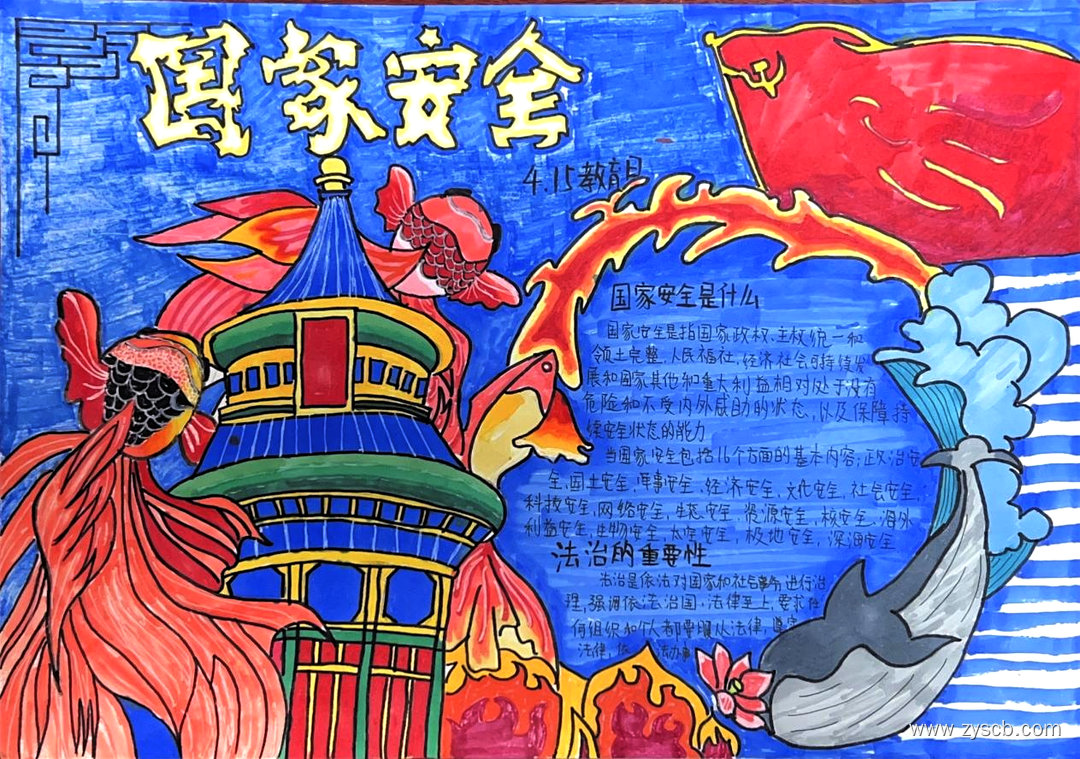 国家安全
4.15教育日
国家安全是什么
国家安全是指国家政权、主权、统一和
领土完整、人民福祉、经济社会可持续发
展和国家其他和重大利益相对处于没有
危险和不受内外威胁的状态,以及保障持
续安全状态的能力
当国家安全包括16个方面的基本内容:政治安
全,国土安全,军事安全,经济安全,文化安全,社会安全,
科技安全,网络安全,生态安全,资源安全,核安全,海外
利益安全,生物安全,太空安全,极地安全,深海安全
法治的重要性
法治是依法对国家和社会事务进行治
理,强调依法治国,法律至上,要求任
何组织和个人都要服从法律,遵守
法律,依 法办事
www.zyscb.com